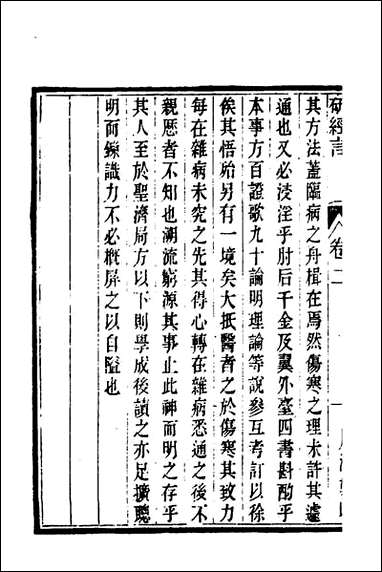 研經言
卷二
一
其方法蓋臨病之舟楫在焉然傷寒之理未許其遽
通也又必浸淫乎肘后千金及翼外臺四書斟酌乎
本事方百證歌九十論明理論等說參互考訂以徐
俟其悟始另有一境矣大抵醫者之於傷寒其致力
每在雜病未究之先其得心轉在雜病悉通之後不
親歷者不知也溯流窮源其事止此神而明之存乎
其人至於聖濟局方以下則學成後讀之亦足擴聰
明而鍊識力不必概屏之以自隘也